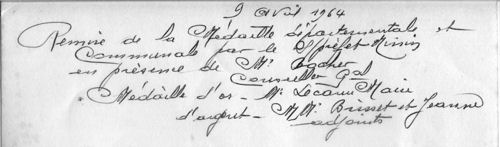 9 Avril 1964
Remise de la Médaille départementale et
Communale par le S/préfet
en présence de Mr
Conseiller Gal
Médaille d'or - Mr Lecanu Maire
d'argent - MMrs Brisset et Jeanne
adjoints